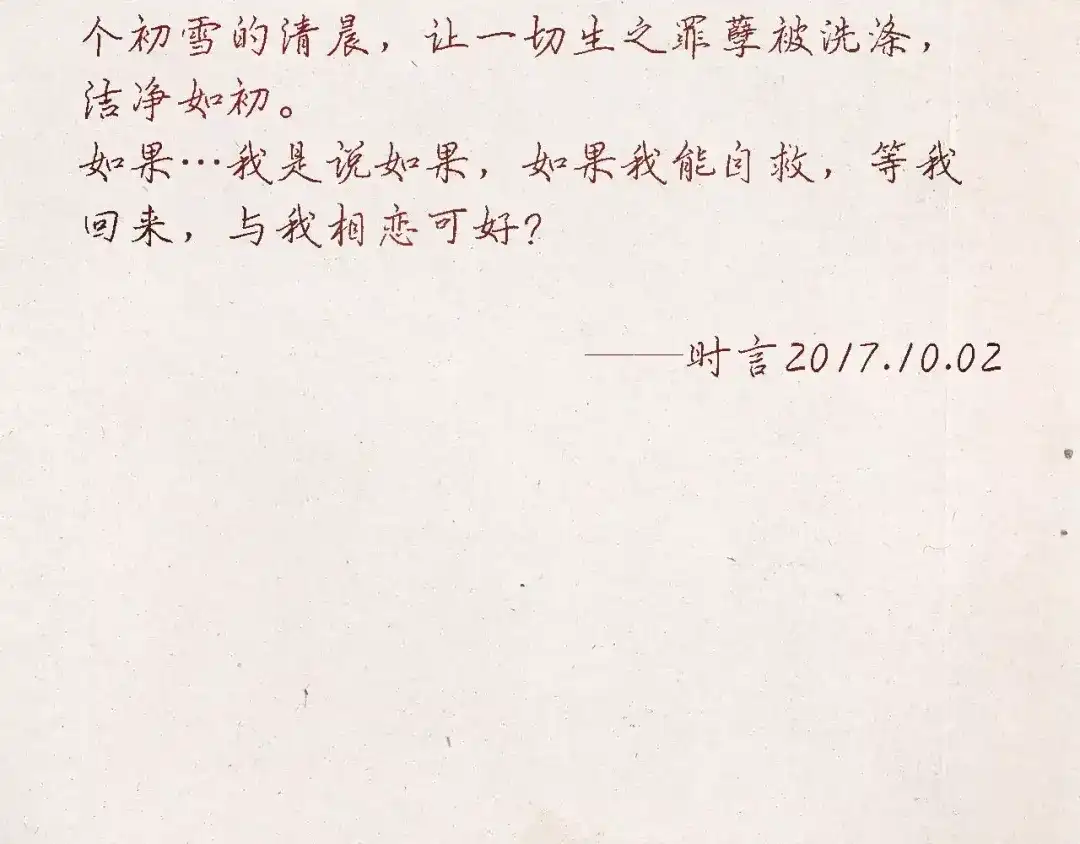 个初雪的清晨，让一切生之罪孽被洗涤，
洁净如初。
如果…我是说如果，如果我能自救，等我
回来，与我相恋可好？
——时言2017.10.02